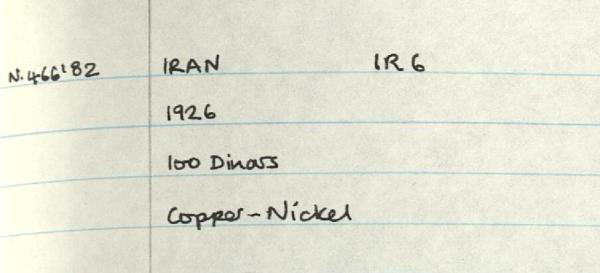 N.466'82 IRAN IR 6
1926
100 Dinars
Copper-Nickel